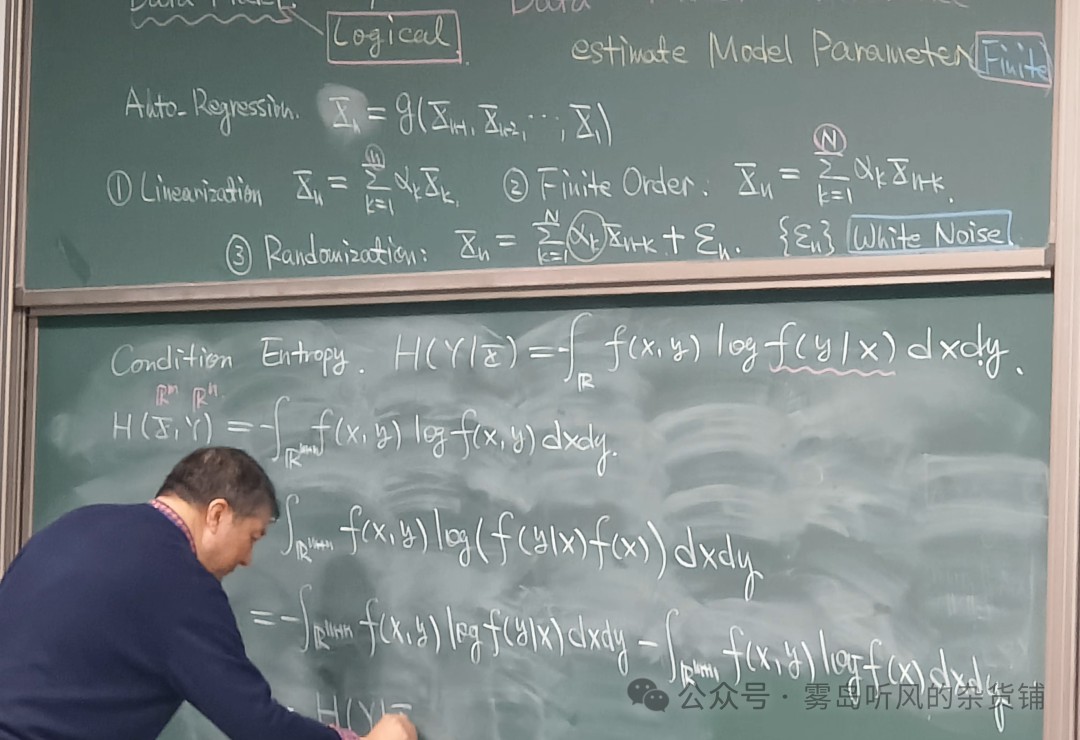 Data
Logical
estimate Model Parameter Finite
Auto-Regression. X̄ₙ = g(X̄ₙ₋₁, X̄ₙ₋₂, ⋯, X̄₁)
① Linearization X̄ₙ = Σ_{k=1}^{n} αₖX̄ₖ. ② Finite Order: X̄ₙ = Σ_{k=1}^{N} αₖX̄ₙ₋ₖ.
③ Randomization: X̄ₙ = Σ_{k=1}^{N} αₖX̄ₙ₋ₖ + εₙ. {εₙ} White Noise
Condition Entropy. H(Y|X̄) = -∫_ℝ f(x,y) log f(y|x) dxdy.
ℝᵐ ℝⁿ
H(X̄,Y) = -∫_{ℝᵐ⁺ⁿ} f(x,y) log f(x,y) dxdy.
∫_{ℝᵐ⁺ⁿ} f(x,y) log(f(y|x)f(x)) dxdy
= -∫_{ℝᵐ⁺ⁿ} f(x,y) log f(y|x) dxdy - ∫_{ℝᵐ⁺ⁿ} f(x,y) log f(x) dxdy
H(Y|
公众号 · 雾岛听风的杂货铺